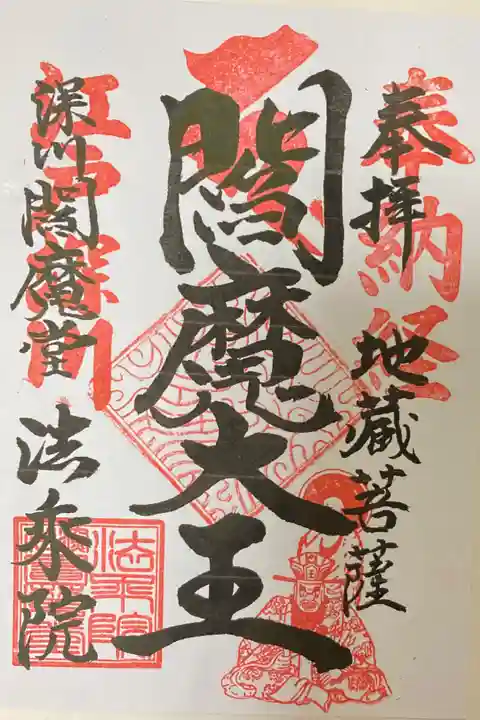 奉拝
奉納経
地蔵菩薩
閻魔大王
江戸深川
深川閻魔堂
法乗院
法乗院